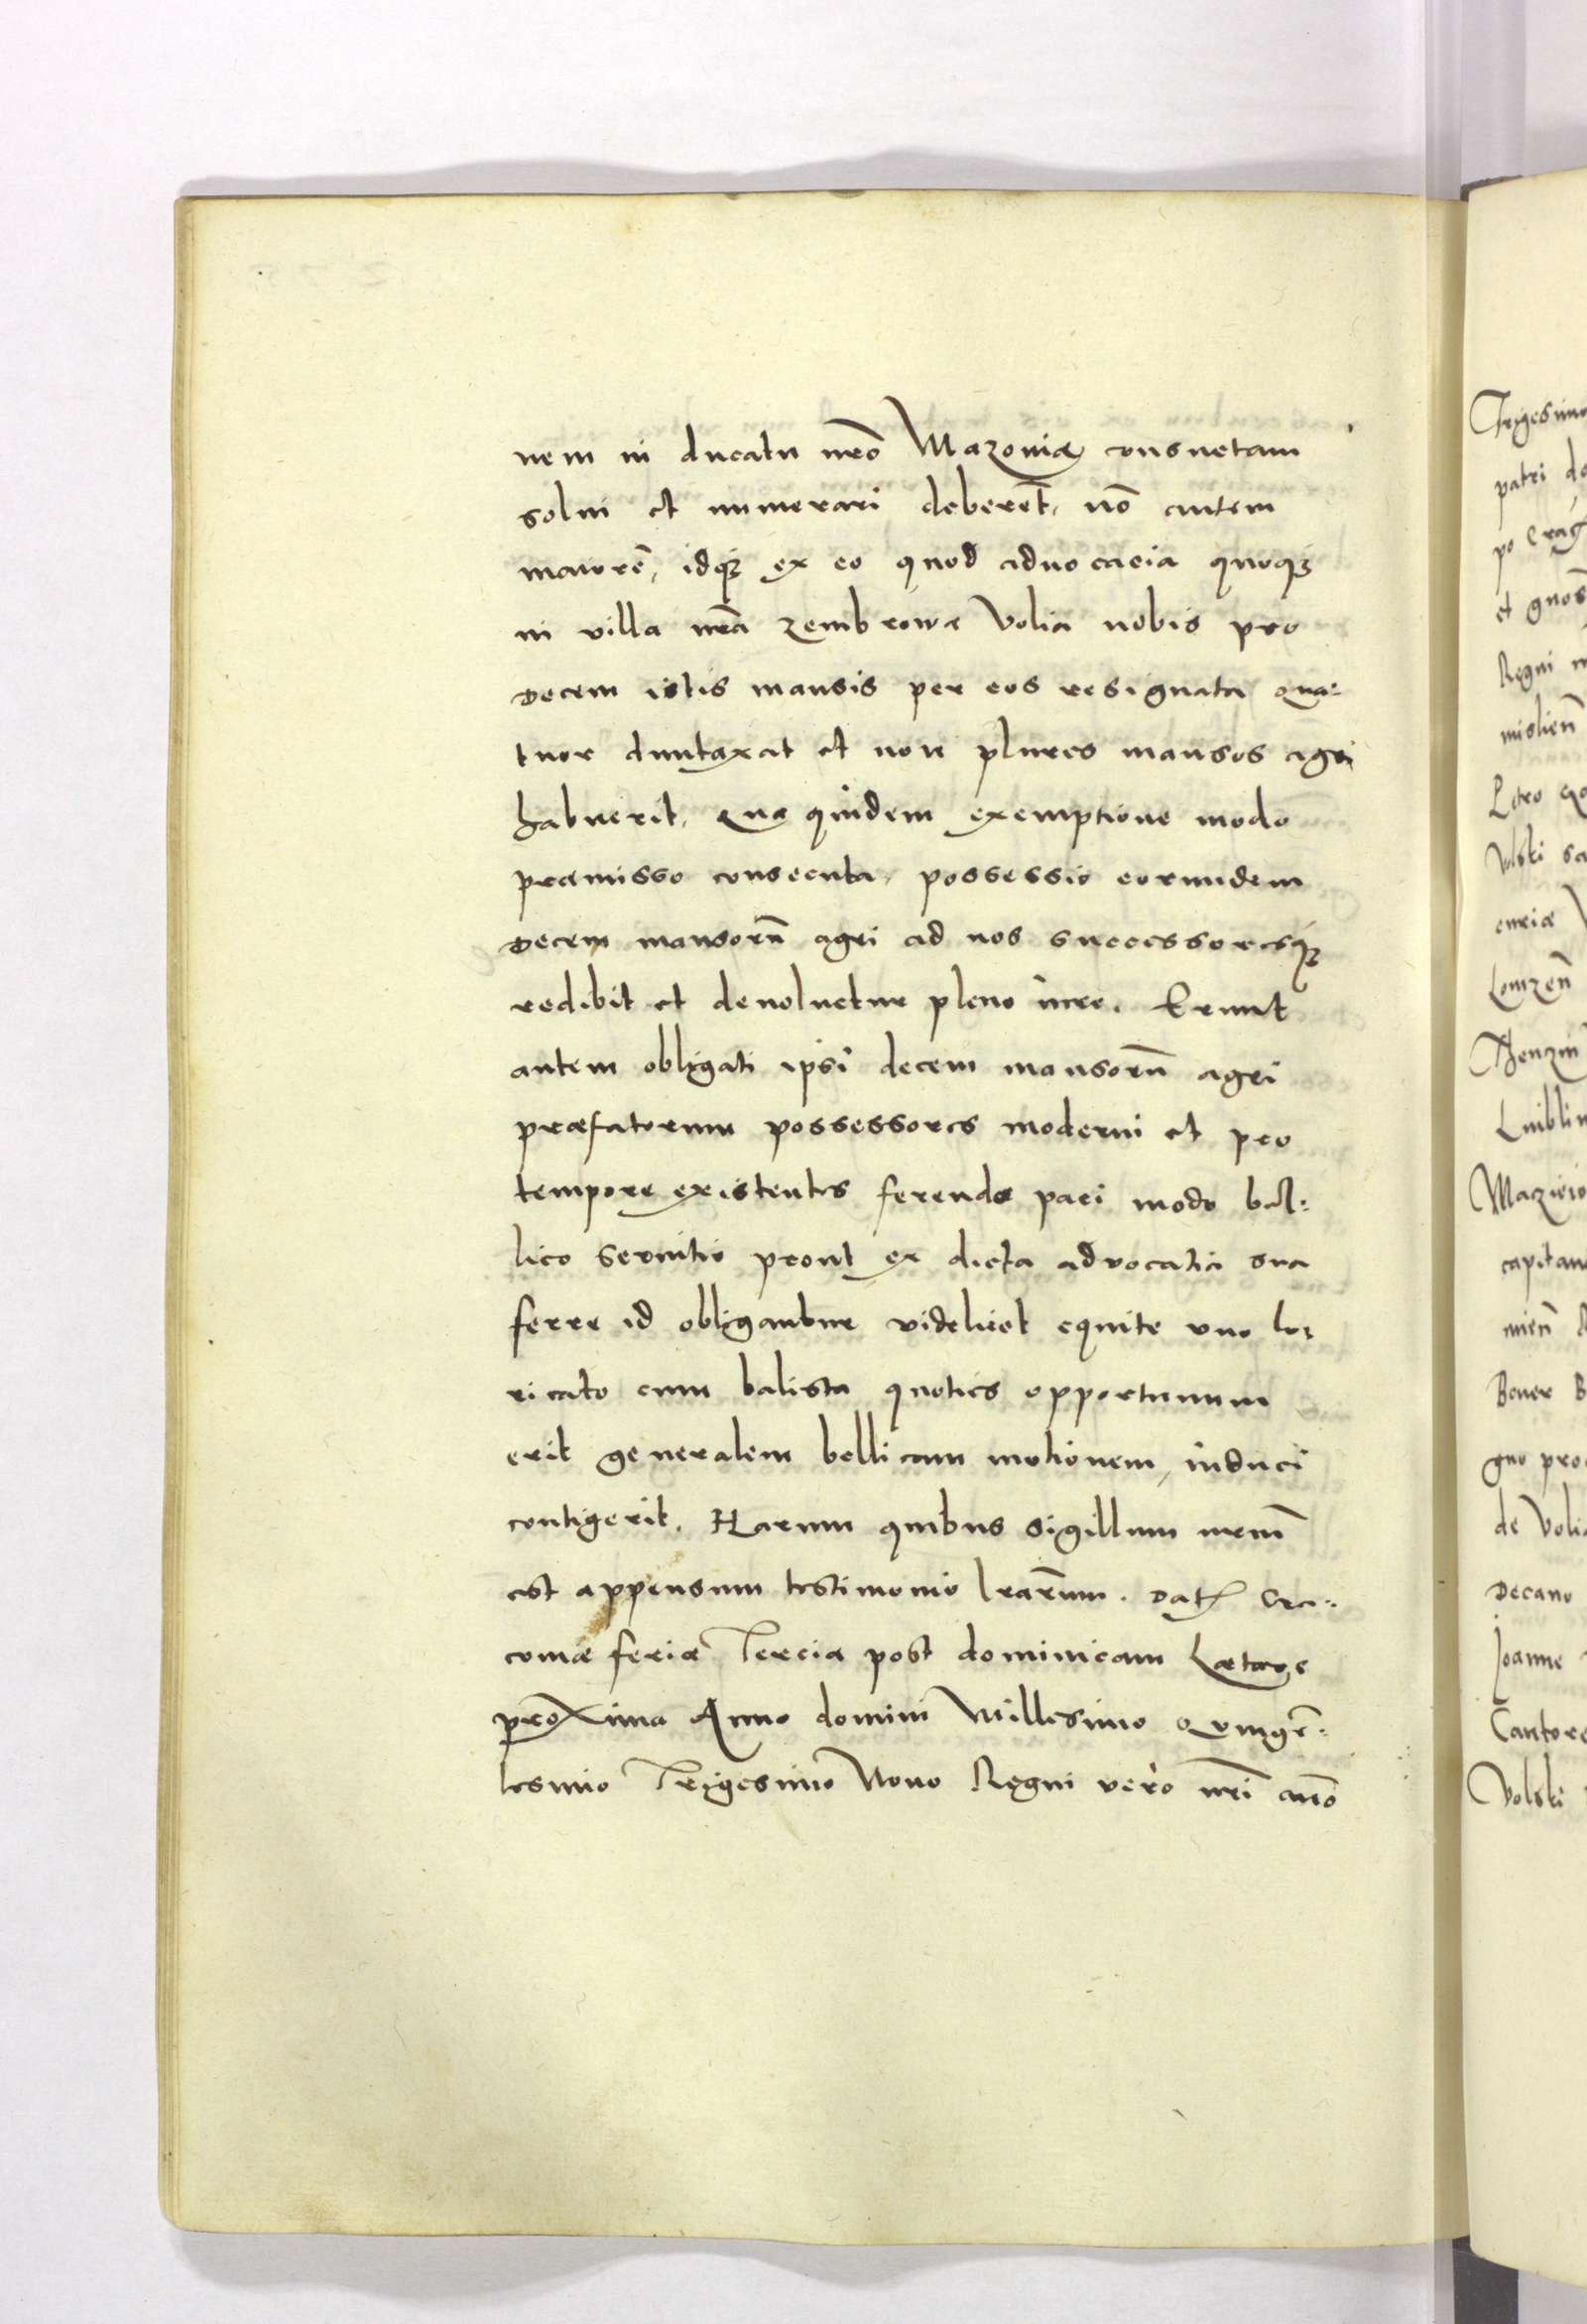 nem in ducatu nr̃o Mazoviæ consuetam
solui et numerari deberẽt, nõ autem
maiorẽ, idq; ex eo quod aduocacia quoq;
in villa nr̃a zembrowa Volia nobis pro
decem istis mansis per eos resignata qua:
tuor duntaxat et non plures mansos agri
habuerit, qua quidem exemptione modo
præmisso consecuta, possessio eorundem
decem mansorũ agri ad nos successoresq;
redibit et deuoluetur pleno iure. Erunt
autem obligati ipsi decem mansorũ agri
præfatorum possessores moderni et pro
tempore existentes ferendæ paci modo bel:
lico seruitio prout ex dicta advocatia sua
ferre id obligantur videlicet equite uno lo:
ricato cum balista quoties opportunum
erit generalem bellicam motionem, induci
contigerit. Harum quibus sigillum nrm̃
est appensum testimonio lrar̃um. Dat Cra:
coviæ feria Tercia post dominicam Lætare
proxima Anno domini Millesimo Quingẽ:
tesimo Trigesimo Nono Regni vero nr̃i ãno
Trigesimo
patri
po
et
Regni
mislien̄
Petro
Volski
curiæ
Lomzen̄
Lublin
capitan
mien̄
Boner
gno
de Voli
Decano
Joanne
Cantore
Volski